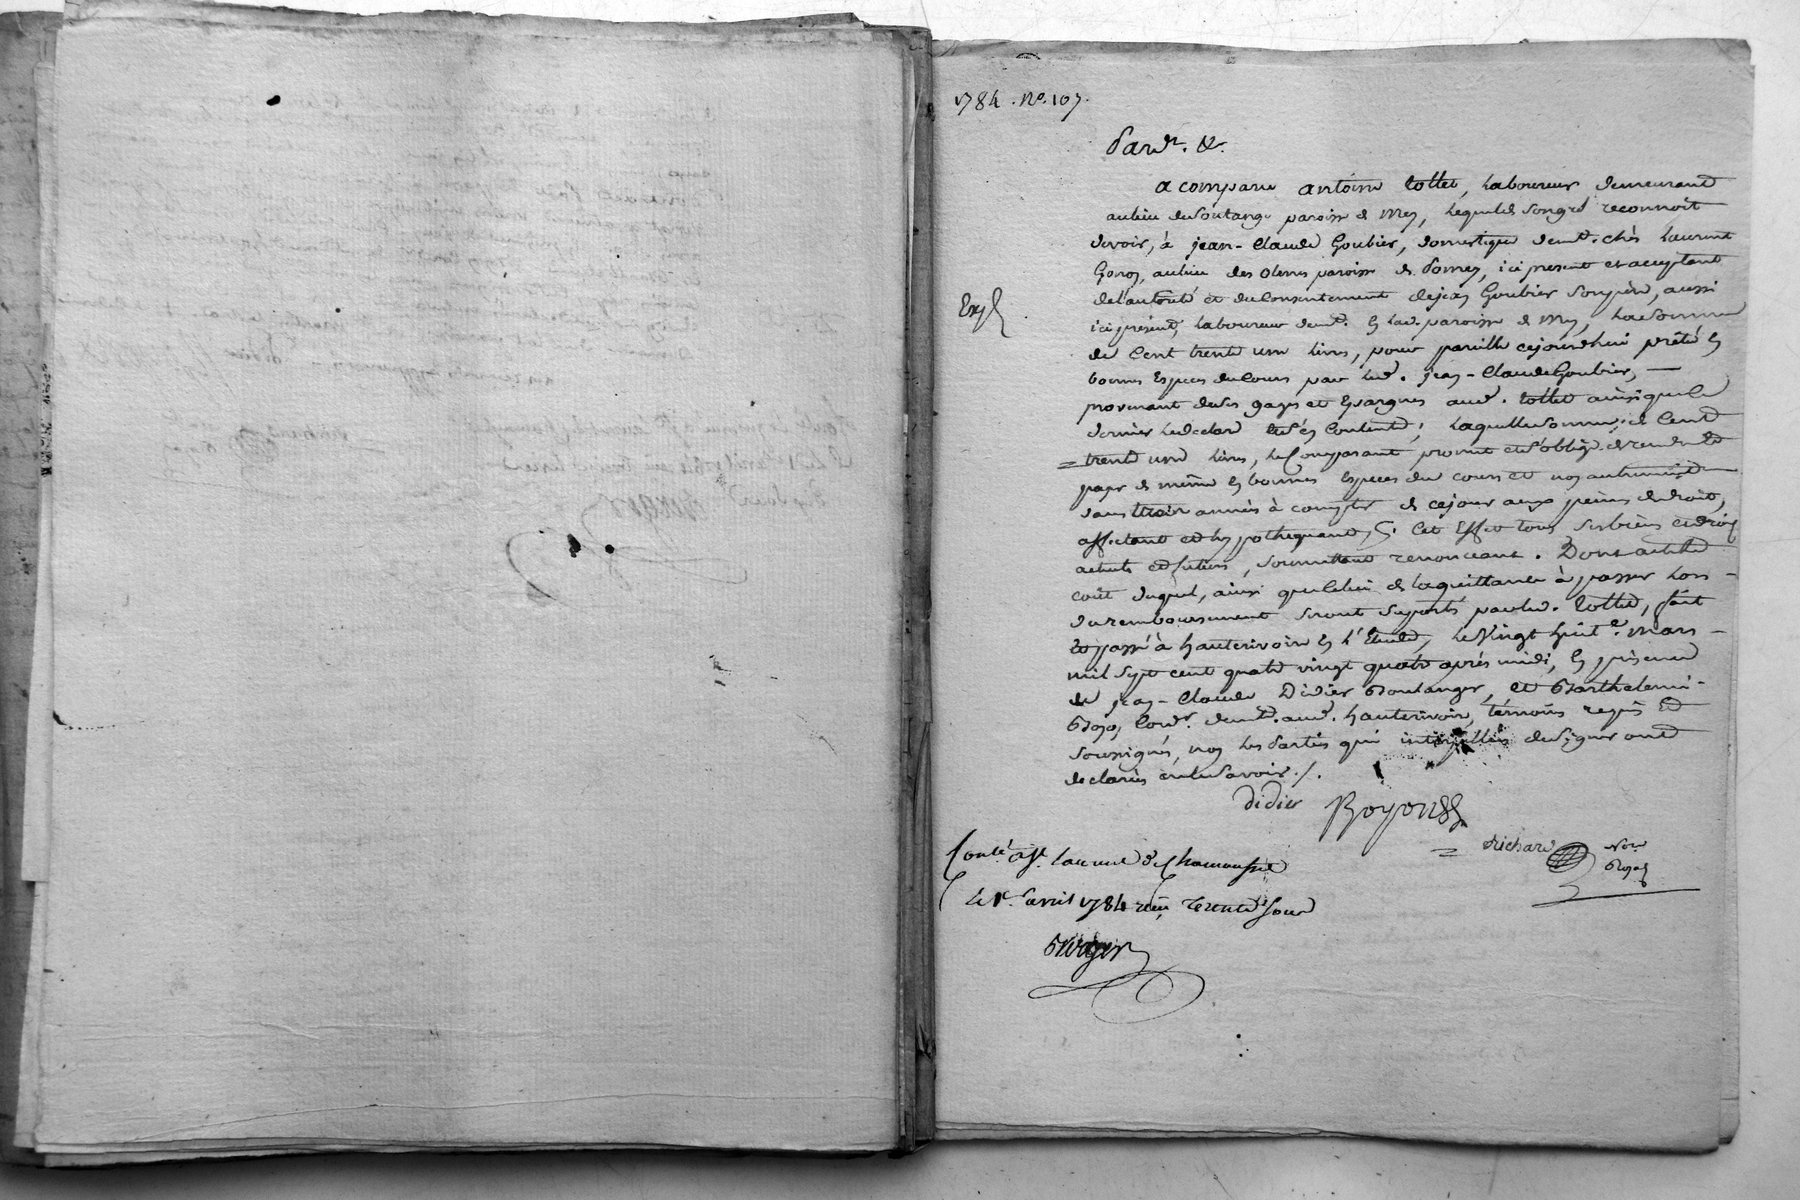 1784. No. 107.
Pard.t &.
a comparu antoine tollet, Laboureur demeurant
au lieu du Soutange paroisse de Mey, Lequel de Songré reconnoit
devoir, à jean-Claude Goubier, domestique demt. chés Laurent
au lieu des olmes paroisse de Pomey, ici present et acceptant
de l'autorité et du Consentement de jean Goubier Son père, aussi
Exp
ici présent, Laboureur demt. en lad. paroisse de Mey, La Somme
de Cent trente une livres, pour pareille cejourdhui prêtée en
bonnes Especes du Cours par led. jean-Claude Goubier, —
provenant de Ses gages et Epargnes aud. tollet ainsi que le
dernier Le declare et s'en Contente; Laquelle Somme de Cent
trente une livres, Le Comparant promet et s'oblige de rendre et
payer de même en bonnes Especes du cours et non autrement
dans trois années à compter de cejour aux peines de droit,
affectant et hypothequant, à Cet Effet tous Ses biens et droits
actuels et futurs, Soumettant renonceant. Dont acte
coût duquel, ainsi que Celui de la quittance à passer Lors
du remboursement Seront Suportés par led. tollet, fait
et passé à hauterivoire en l'Etude, Le Vingt huit.e mars
mil Sept cent quatre vingt quatre après midi, en présence
de jean-Claude Didier Boulanger, et Barthelemi
Cord.r demt. aud. hauterivoire, témoins requis et
Soussignés, non Les Parties qui interpellées de Signer ont
declarées ne le Savoir./.
didier Boyon
richard Not.re
Royal
Con.lé à St. Laurent de Chamousset
Le 1.r avril 1784 reçu trente Sous